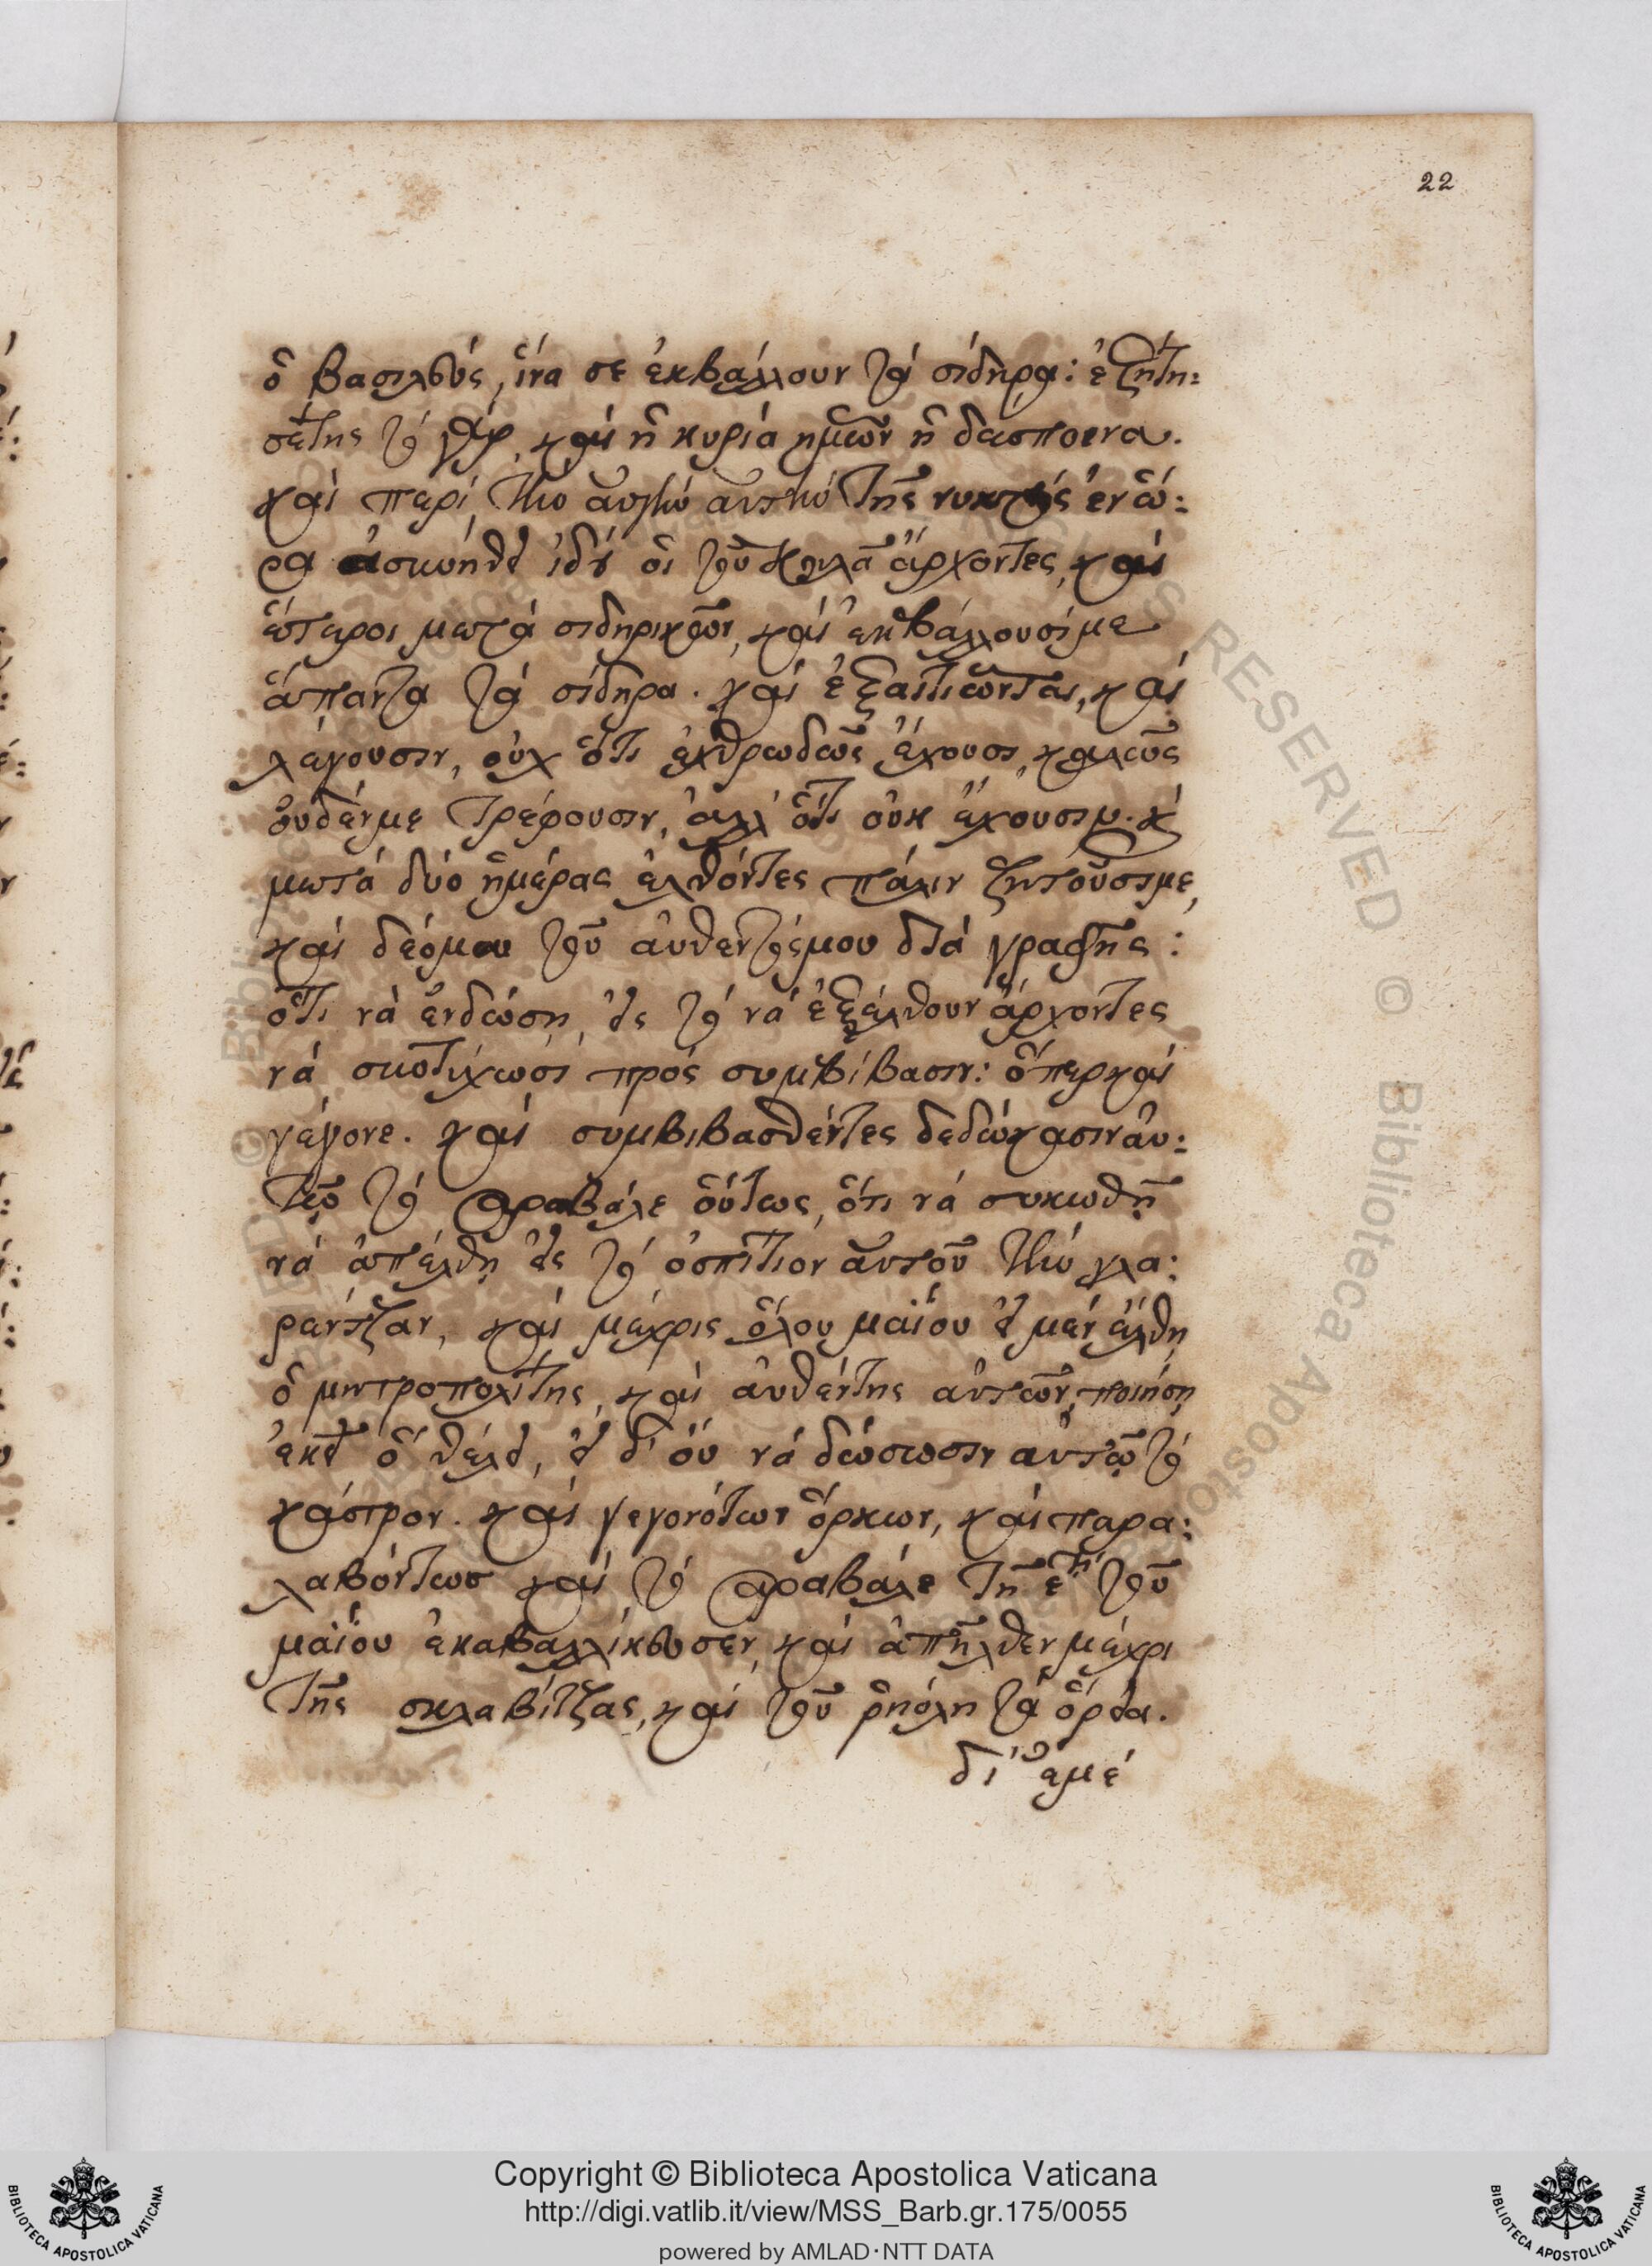 22
ὁ βασιλεύς, ἵνα σε ἐκβάλλουν τὰ σίδηρα: ἐζήτη:
σέ της τὸ γὰρ, καὶ ἡ κυρία ημῶν ἡ δέσποινα.
καὶ περὶ τὴν αυγὴν αυτὴν τῆς νυκτὸς ἐν ὥ:
ρα ἀσκώηθει ἰδοὺ οἱ τοῦ κουλᾶ ἄρχοντες, καὶ
ἕτεροι μετὰ σιδηρικῶν, καὶ ἐκβάλλουσί με
ἅπαντα τὰ σίδηρα. καὶ ἐξαιτιῶνται, καὶ
λέγουσιν, οὐχ ὅτι ἐχθρωδῶς ἔχουσι, καλῶς
οὐδέν με τρέφουσιν, ἀλλ' ὅτι οὐκ ἔχουσιν. κὲ
μετὰ δύο ἡμέρας ἐλθόντες πάλιν ζητοῦσι με,
καὶ δέομαι τοῦ ἀυθεντός μου διὰ γραφῆς:
ὅτι νὰ ἐνδώση, εἰς τὸ νὰ ἐξέλθουν ἄρχοντες
νὰ σκοτίχωσι πρὸς συμβίβασιν: ὅπερ καὶ
γέγονε. καὶ συμβιβασθέντες δεδώκασιν ἀυ:
τῷ τὸ ἀραβάλε οὕτως, ὅτι νὰ συκωθῇ
νὰ ἀπέλθῃ εἰς τὸ ὁσπίτιον αυτοῦ τὴν γλα:
ρέντζαν, καὶ μέχρις ὅλου μαΐου εἰ μὲν ἔλθῃ
ὁ μητροπολίτης, καὶ ἀυθέντης ἀυτῶν, ποιήσῃ
ἐκεῖ ὅ θέλει, εἰ δ' ὀυ νὰ δώσωσιν αὐτῷ τὸ
κάστρον. καὶ γεγονότων ὅρκων, καὶ παρα:
λαβόντων καὶ τὸ ἀραβάλε τῇ ε.τῃ τοῦ
μαΐου ἐκαβαλλίκευσεν, καὶ ἀπῆλθεν μέχρι
τῆς σκλαβίτζας, καὶ τοῦ ῥηόλη τὰ ὅρια.
δι' ἐμὲ
Copyright © Biblioteca Apostolica Vaticana
http://digi.vatlib.it/view/MSS_Barb.gr.175/0055
powered by AMLAD·NTT DATA
BIBLIOTECA APOSTOLICA VATICANA
BIBLIOTECA APOSTOLICA VATICANA